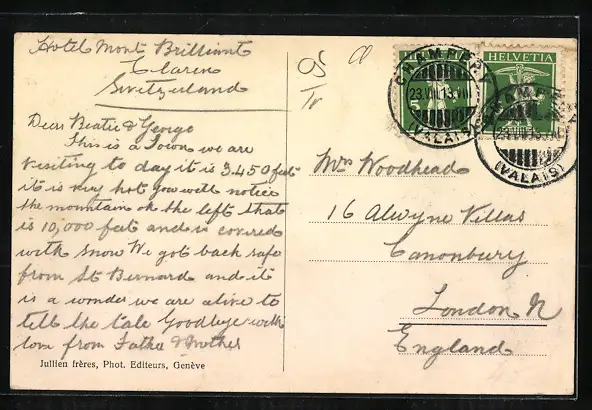 Hotel Mont Brilliant
Clarens
Switzerland
Dear Beatie & George
This is a Town we are
visiting to day it is 3.450 feet
it is very hot you will notice
the mountain on the left that
is 10,000 feet and is covered
with snow We got back safe
from St Bernard and it
is a wonder we are alive to
tell the tale Goodbye with
love from Father & Mother
Jullien frères, Phot. Editeurs, Genève
Mrs Woodhead
16 Alwyne Villas
Canonbury
London N
England
CHAMPÉRY
23.VIII.13
(VALAIS)
5
HELVETIA
CHAMPÉRY
23.VIII.13
(VALAIS)